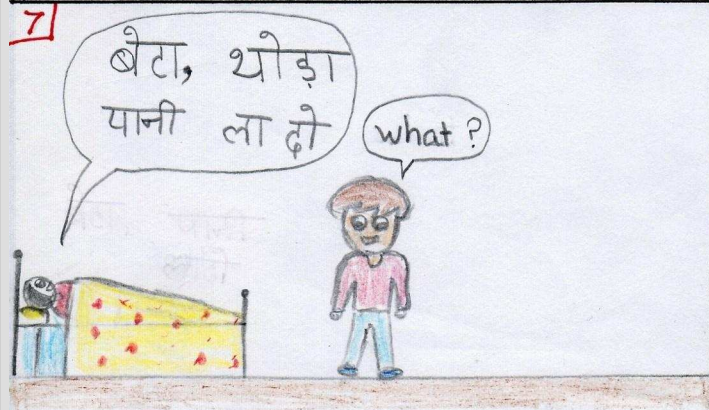 7
बेटा, थोड़ा
पानी ला दो
what ?